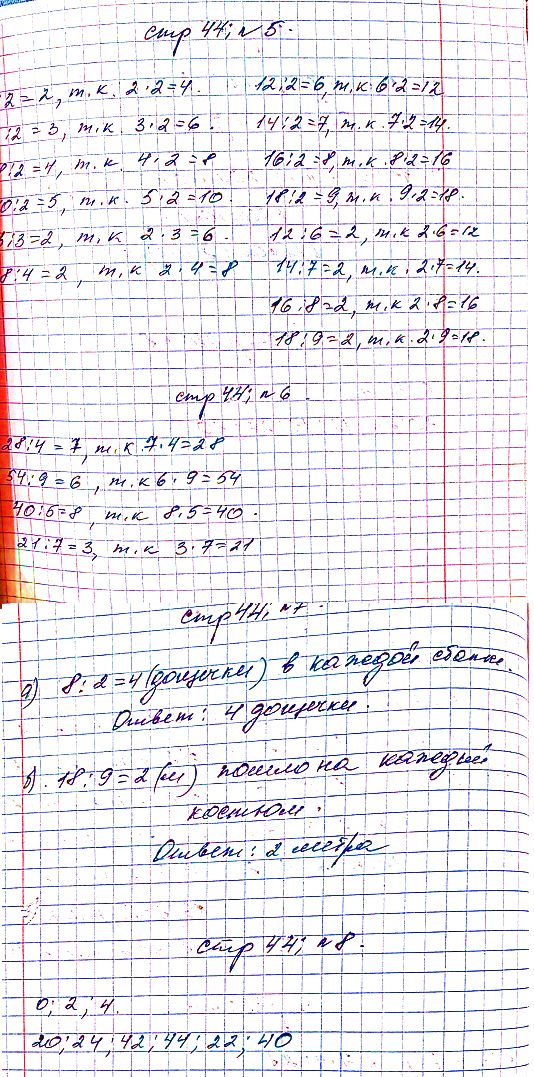 стр 44; №5.
:2=2, т.к. 2·2=4.
:2=3, т.к. 3·2=6.
8:2=4, т.к. 4·2=8
0:2=5, т.к. 5·2=10.
:3=2, т.к 2·3=6.
8:4=2, т.к 2·4=8
12:2=6, т.к 6·2=12
14:2=7, т.к. 7·2=14.
16:2=8, т.к. 8·2=16
18:2=9, т.к. 9·2=18.
12:6=2, т.к 2·6=12
14:7=2, т.к. 2·7=14.
16:8=2, т.к 2·8=16
18:9=2, т.к. 2·9=18.
стр 44; №6.
28:4=7, т.к 7·4=28
54:9=6, т.к 6·9=54
40:5=8, т.к 8·5=40.
21:7=3, т.к 3·7=21
стр 44; №7.
а) 8:2=4 (дощечки) в каждой
Ответ: 4 дощечки.
б). 18:9=2 (м) пошло на каждый
костюм.
Ответ: 2 метра
стр 44; №8.
0; 2; 4.
20; 24; 42; 44; 22; 40